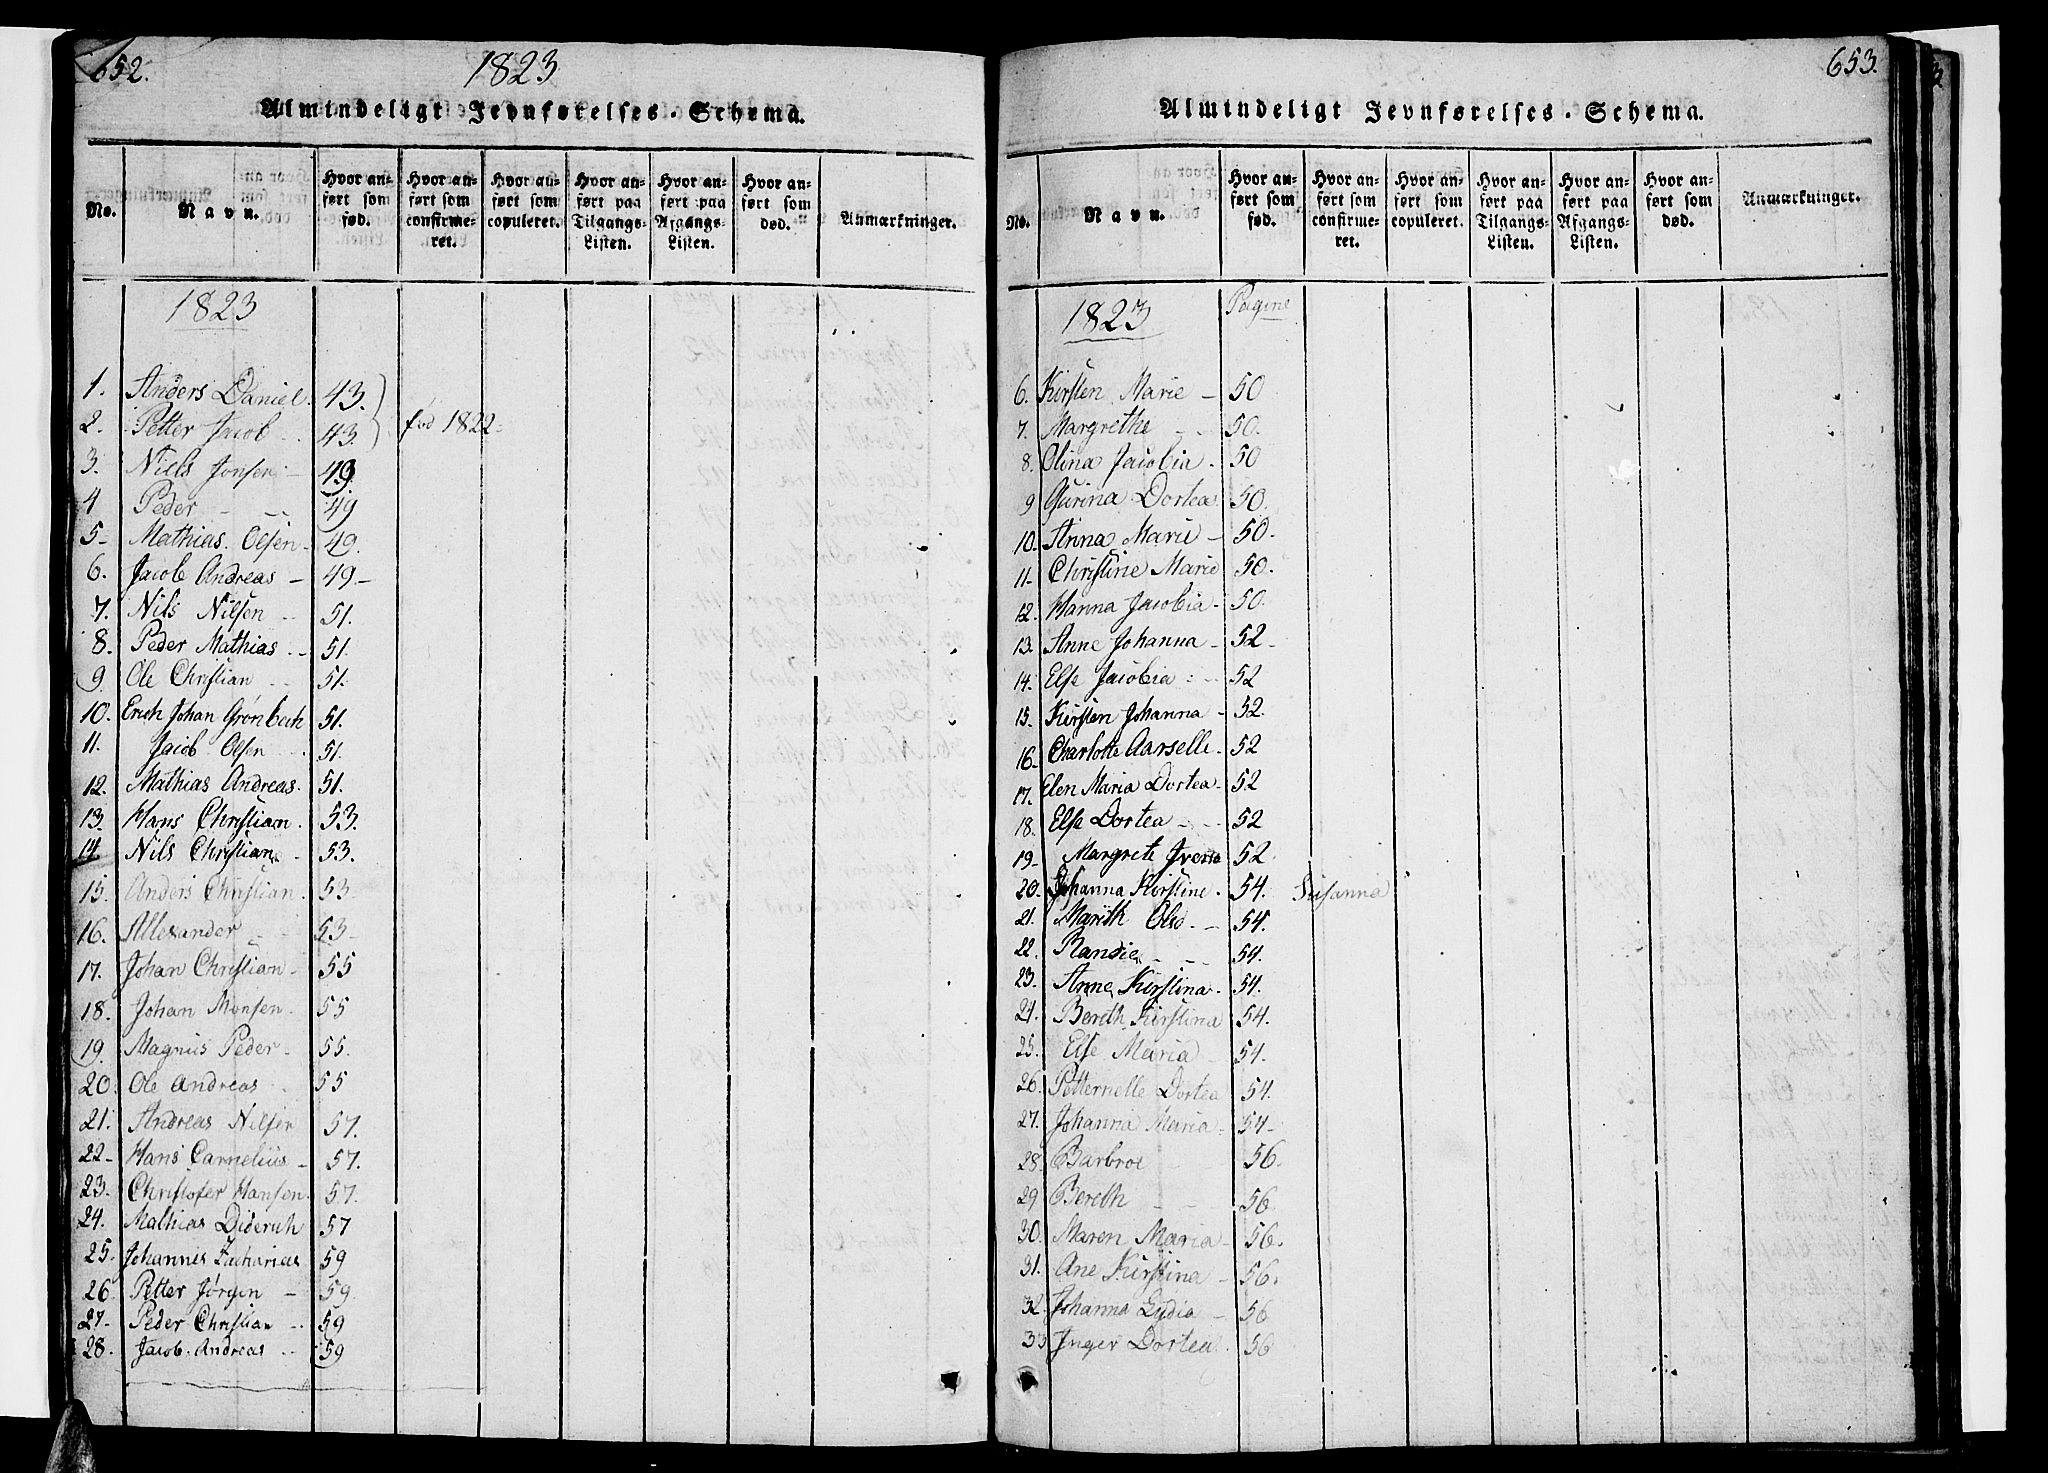 652.
1823
Almindeligt Jevnførelses-Schema.
No.
Navn.
Hvor anført som fød.
Hvor anført som confirmeret.
Hvor anført som copuleret.
Hvor anført paa Tilgangs-Listen.
Hvor anført paa Afgangs-Listen.
Hvor anført som død.
Anmærkninger.
1823
1. Anders Daniel. 43.
2. Petter Jacob 43. fød 1822-
3. Niels Jonsen - 49
4 Peder - - 49
5- Mathias Olsen- 49.
6. Jacob Andreas - 49-
7. Nils Nilsen - 51.
8. Peder Mathias - 51.
9. Ole Christian 51.
10. Erich Johan Grønbech 51.
11. Jacob Olsen 51.
12. Mathias Andreas. 51.
13. Hans Christian. 53.
14 Nils Christian - 53.
15. Anders Christian. 53
16. Allexander - 53-
17. Johan Christian- 55
18. Johan Monsen- 55
19. Magnus Peder- 55.
20. Ole Andreas 55
21. Andreas Nilsen 57.
22- Hans Carnelius- 57.
23. Christofer Hansen. 57.
24. Mathias Diderich 57
25. Johannes Zacharias 59
26. Petter Jørgen - 59.
27- Peder Christian - 59
28. Jacob Andreas - 59
653.
Almindeligt Jevnførelses-Schema.
No.
Navn.
Hvor anført som fød.
Hvor anført som confirmeret.
Hvor anført som copuleret.
Hvor anført paa Tilgangs-Listen.
Hvor anført paa Afgangs-Listen.
Hvor anført som død.
Anmærkninger.
1823 Pagine
6. Kirsten Marie - 50
7. Margrethe - 50.
8. Olina Jacobia. 50
9 Gurina Dortea 50.
10. Anna Marie - 50.
11- Christine Marie 50.
12. Hanna Jacobia. 50.
13. Anne Johanna - 52-
14. Else Jacobia - 52
15. Kirsten Johanna - 52.
16- Charlotte Aarselle. 52
17. Elen Maria Dortea- 52
18. Else Dortea - 52
19- Margrete Iverso 52.
20. Johanna Kirstine. 54. Susanna
21. Marith Olso. - 54.
22. Randie - - 54.
23. Anne Kirstina. 54.
24. Bereth Kirstina 54.
25. Else Maria 54.
26. Petternelle Dortea 54.
27. Johanna Maria. 54-
28. Barbroe - 56.
29 Bereth - - 56
30. Maren Maria- 56.
31. Ane Kirstina - 56.
32. Johanna Lydia - 56
33 Inger Dortea. 56